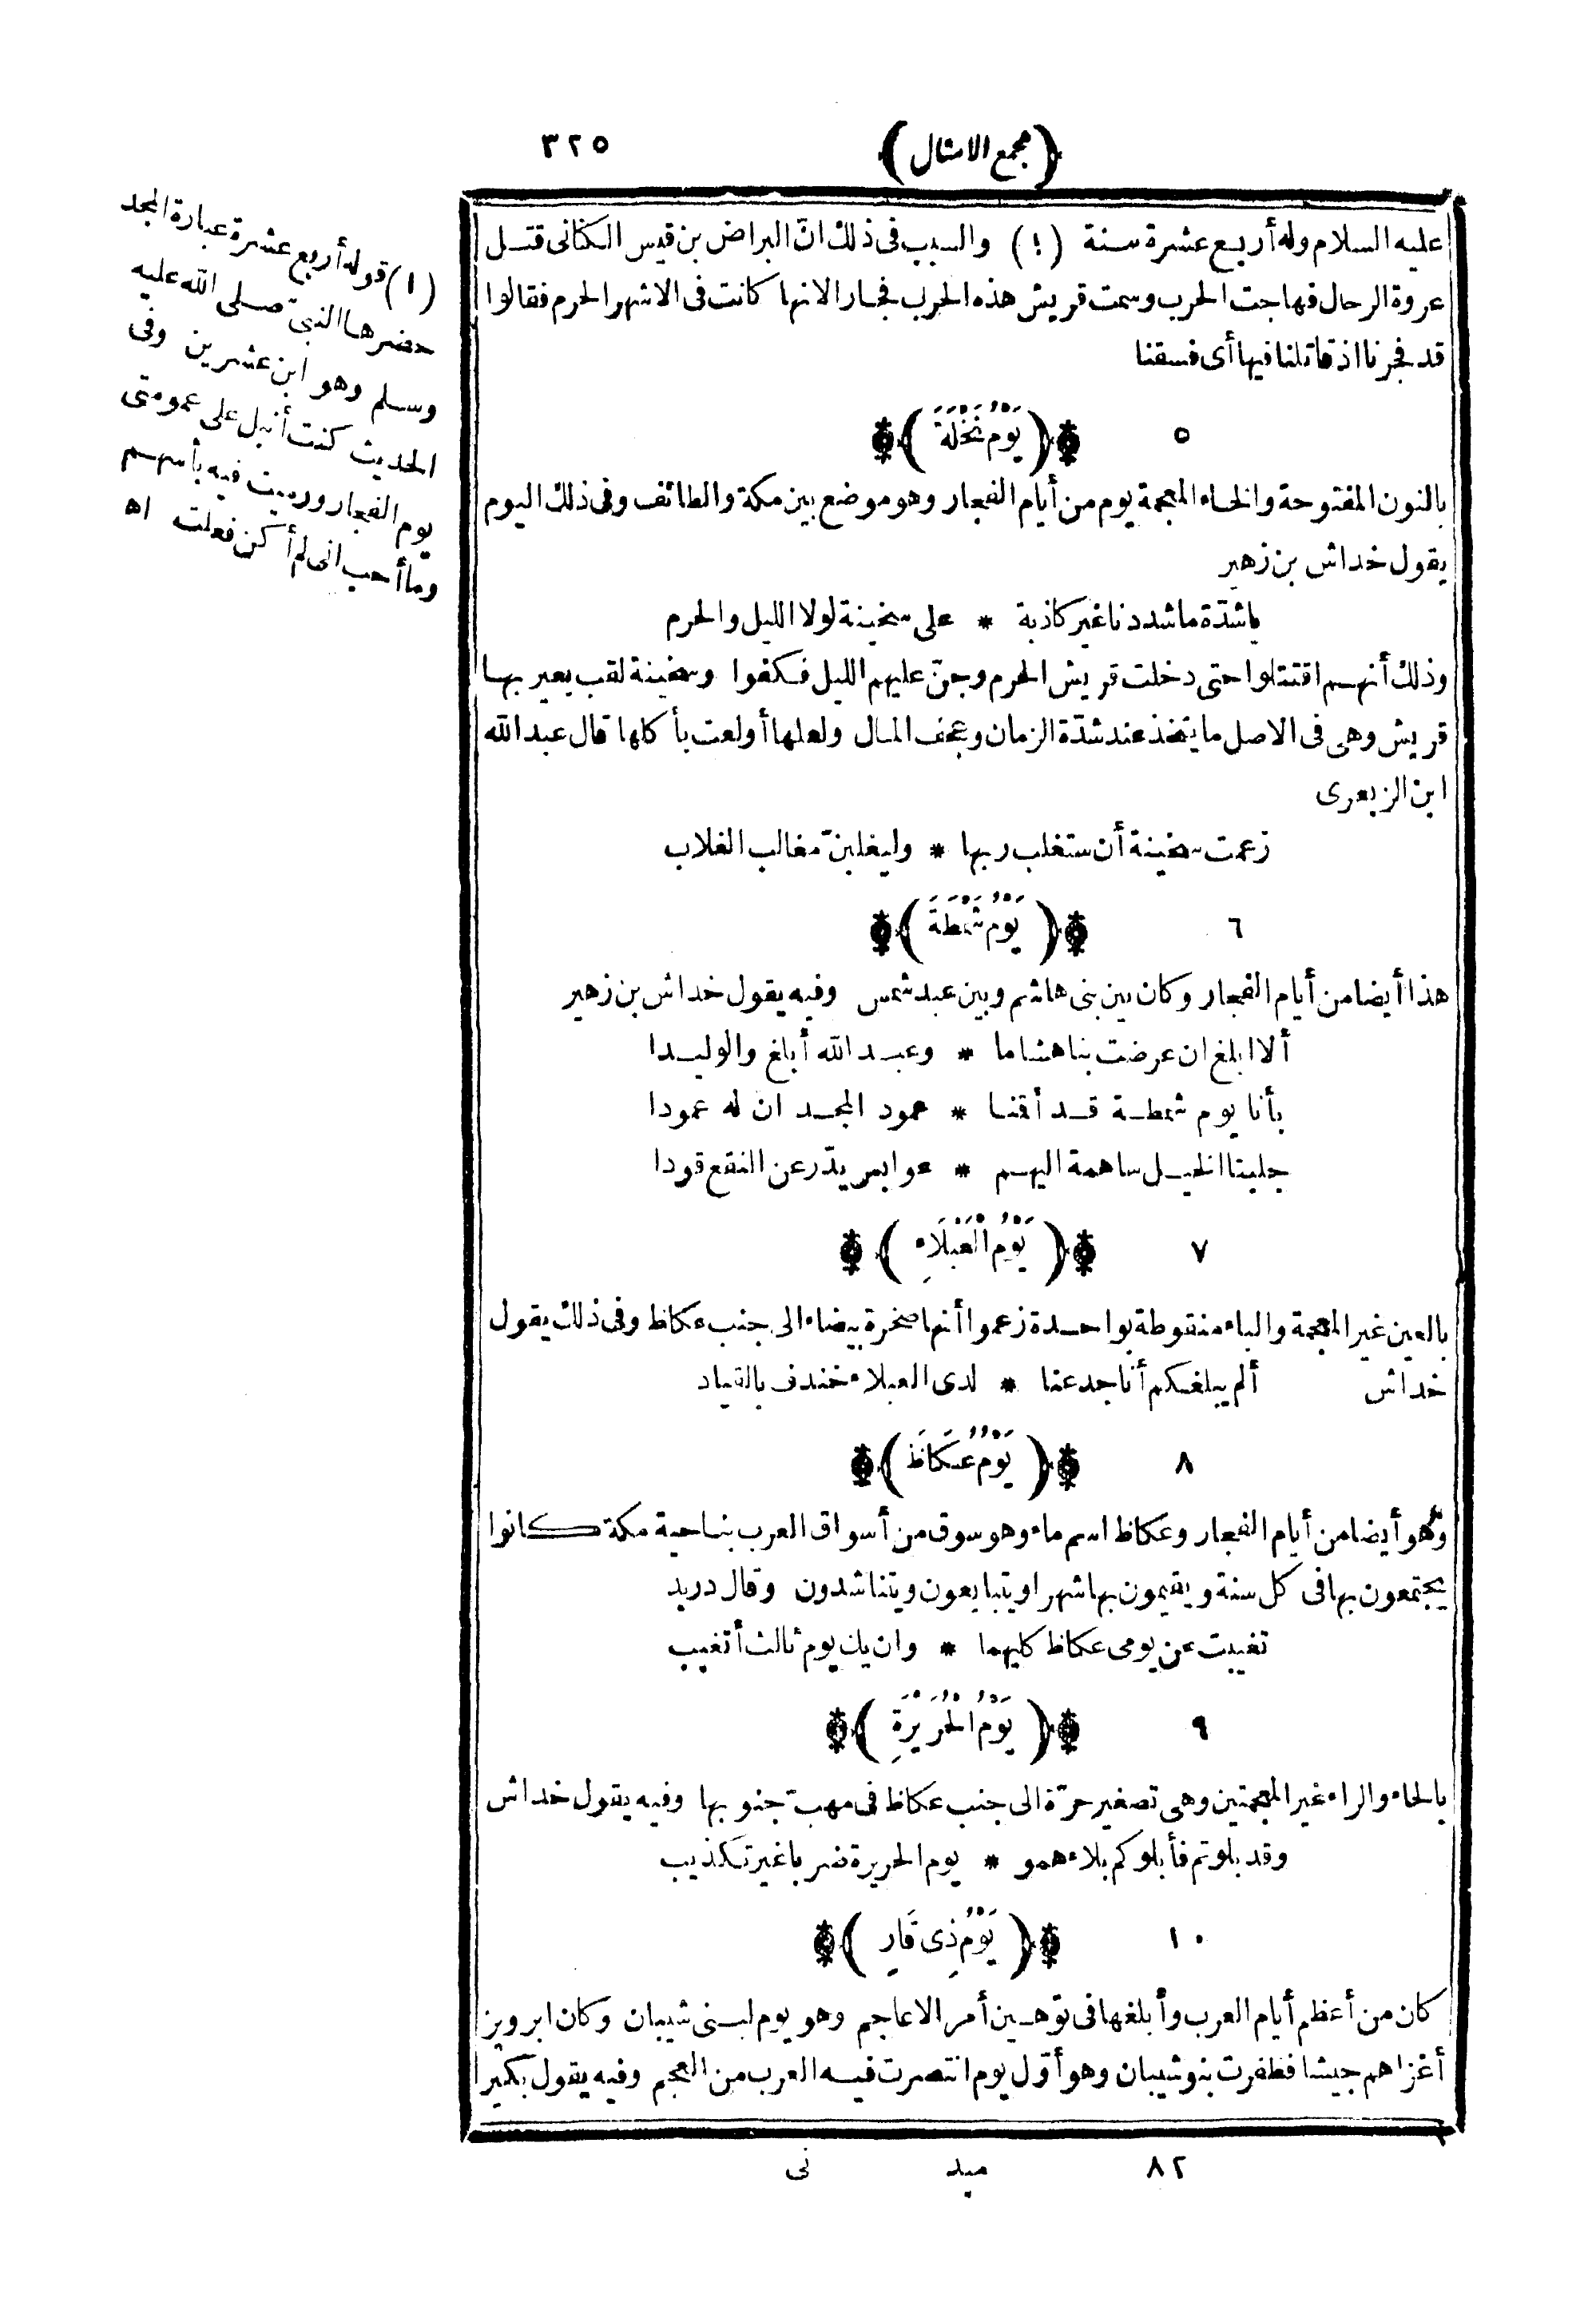 (مجمع الامثال) ٣٢٥
عليه السلام وله أربع عشرة سنة (١) والسبب فى ذلك انّ البراض بن قيس الكنانى قتل
عروة الرحال فهاجت الحرب وسمت قريش هذه الحرب فجارا لانها كانت فى الاشهر الحرم فقالوا
قد فجرنا اذ قاتلنا فيها أى فسقنا
٥ (يَوْمُ نَخْلَةَ)
بالنون المفتوحة والخاء المعجمة يوم من أيام الفجار وهو موضع بين مكة والطائف وفى ذلك اليوم
يقول خداش بن زهير
يا شدّة ما شددنا غير كاذبة * على سخينة لولا الليل والحرم
وذلك أنهم اقتتلوا حتى دخلت قريش الحرم وجنّ عليهم الليل فكفوا وسخينة لقب يعير بها
قريش وهى فى الاصل ما يتخذ عند شدّة الزمان وعجف المال ولعلها أولعت بأكلها قال عبد الله
ابن الزبعرى
زعمت سخينة أن ستغلب ربها * وليغلبنّ مغالب الغلاب
٦ (يَوْمُ شَمْطَةَ)
هذا أيضا من أيام الفجار وكان بين بنى هاشم وبين عبد شمس وفيه يقول خداش بن زهير
ألا ابلغ ان عرضت بنا هشاما * وعبد الله أبلغ والوليدا
بأنا يوم شمطة قد أقنا * عمود المجد ان له عمودا
جلبنا الخيل ساهمة اليهم * عوابس يدّرعن النقع قودا
٧ (يَوْمُ الْعَبْلَاءِ)
بالعين غير المعجمة والباء منقوطة بواحدة زعموا أنها صخرة بيضاء الى جنب عكاظ وفى ذلك يقول
خداش ألم يبلغكم أنا جدعنا * لدى العبلاء خندف بالقياد
٨ (يَوْمُ عُكَاظَ)
وهو أيضا من أيام الفجار وعكاظ اسم ماء وهو سوق من أسواق العرب بناحية مكة كانوا
يجتمعون بها فى كل سنة ويقيمون بها شهرا ويتبايعون ويتناشدون وقال دريد
تغيبت عن يومى عكاظ كليهما * وان يك يوم ثالث أتغيب
٩ (يَوْمُ الْحُرَيْرَةِ)
بالحاء والراء غير المعجمتين وهى تصغير حرّة الى جنب عكاظ فى مهبّ جنوبها وفيه يقول خداش
وقد بلوتم فأبلوكم بلاءهمو * يوم الحريرة ضربا غير تكذيب
١٠ (يَوْمُ ذِى قَارٍ)
كان من أعظم أيام العرب وأبلغها فى توهين أمر الاعاجم وهو يوم لبنى شيبان وكان ابرويز
أغزاهم جيشا فظفرت بنو شيبان وهو أوّل يوم انتصرت فيه العرب من العجم وفيه يقول بكيرا
٨٢ ميد نى
(١) قوله أربع عشرة عبارة المجد
حضرها النبىّ صلى الله عليه
وسلم وهو ابن عشرين وفى
الحديث كنت أنبل على عمومتى
يوم الفجار ورميت فيه بأسهم
وما أحب انى لم أكن فعلت اه